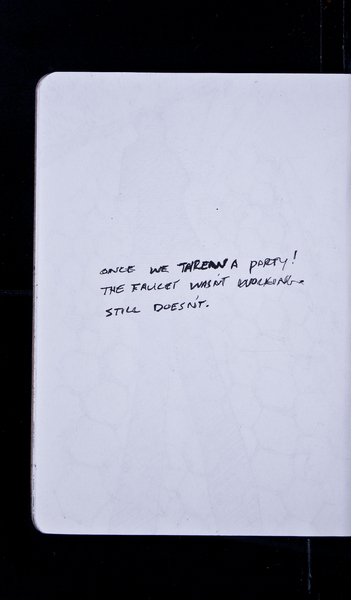 ONCE WE THREW A PARTY!
THE FAUCET WASN'T WORKING.
STILL DOESN'T.